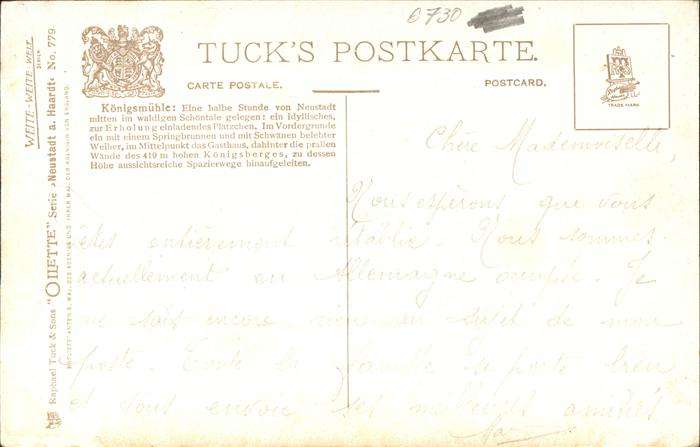 6730
TUCK'S POSTKARTE.
CARTE POSTALE.
POSTCARD.
TRADE MARK
Königsmühle: Eine halbe Stunde von Neustadt
mitten im waldigen Schöntale gelegen: ein idyllisches,
zur Erholung einladendes Plätzchen. Im Vordergrunde
ein mit einem Springbrunnen und mit Schwänen belebter
Weiher, im Mittelpunkt das Gasthaus, dahinter die prallen
Wände des 419 m hohen Königsberges, zu dessen
Höhe aussichtsreiche Spazierwege hinaufgeleiten.
WEITE-WEITE-WELT
SERIEN
Raphael Tuck & Sons "OILETTE" Serie »Neustadt a. Haardt« No. 779.
Chère Mademoiselle,
Nous espérons que vous
êtes entièrement rétablie. Nous sommes
actuellement en Allemagne occupée. Je
ne sais encore rien au sujet de mon
poste. Toute la famille se porte bien
et vous envoie ses meilleures amitiés